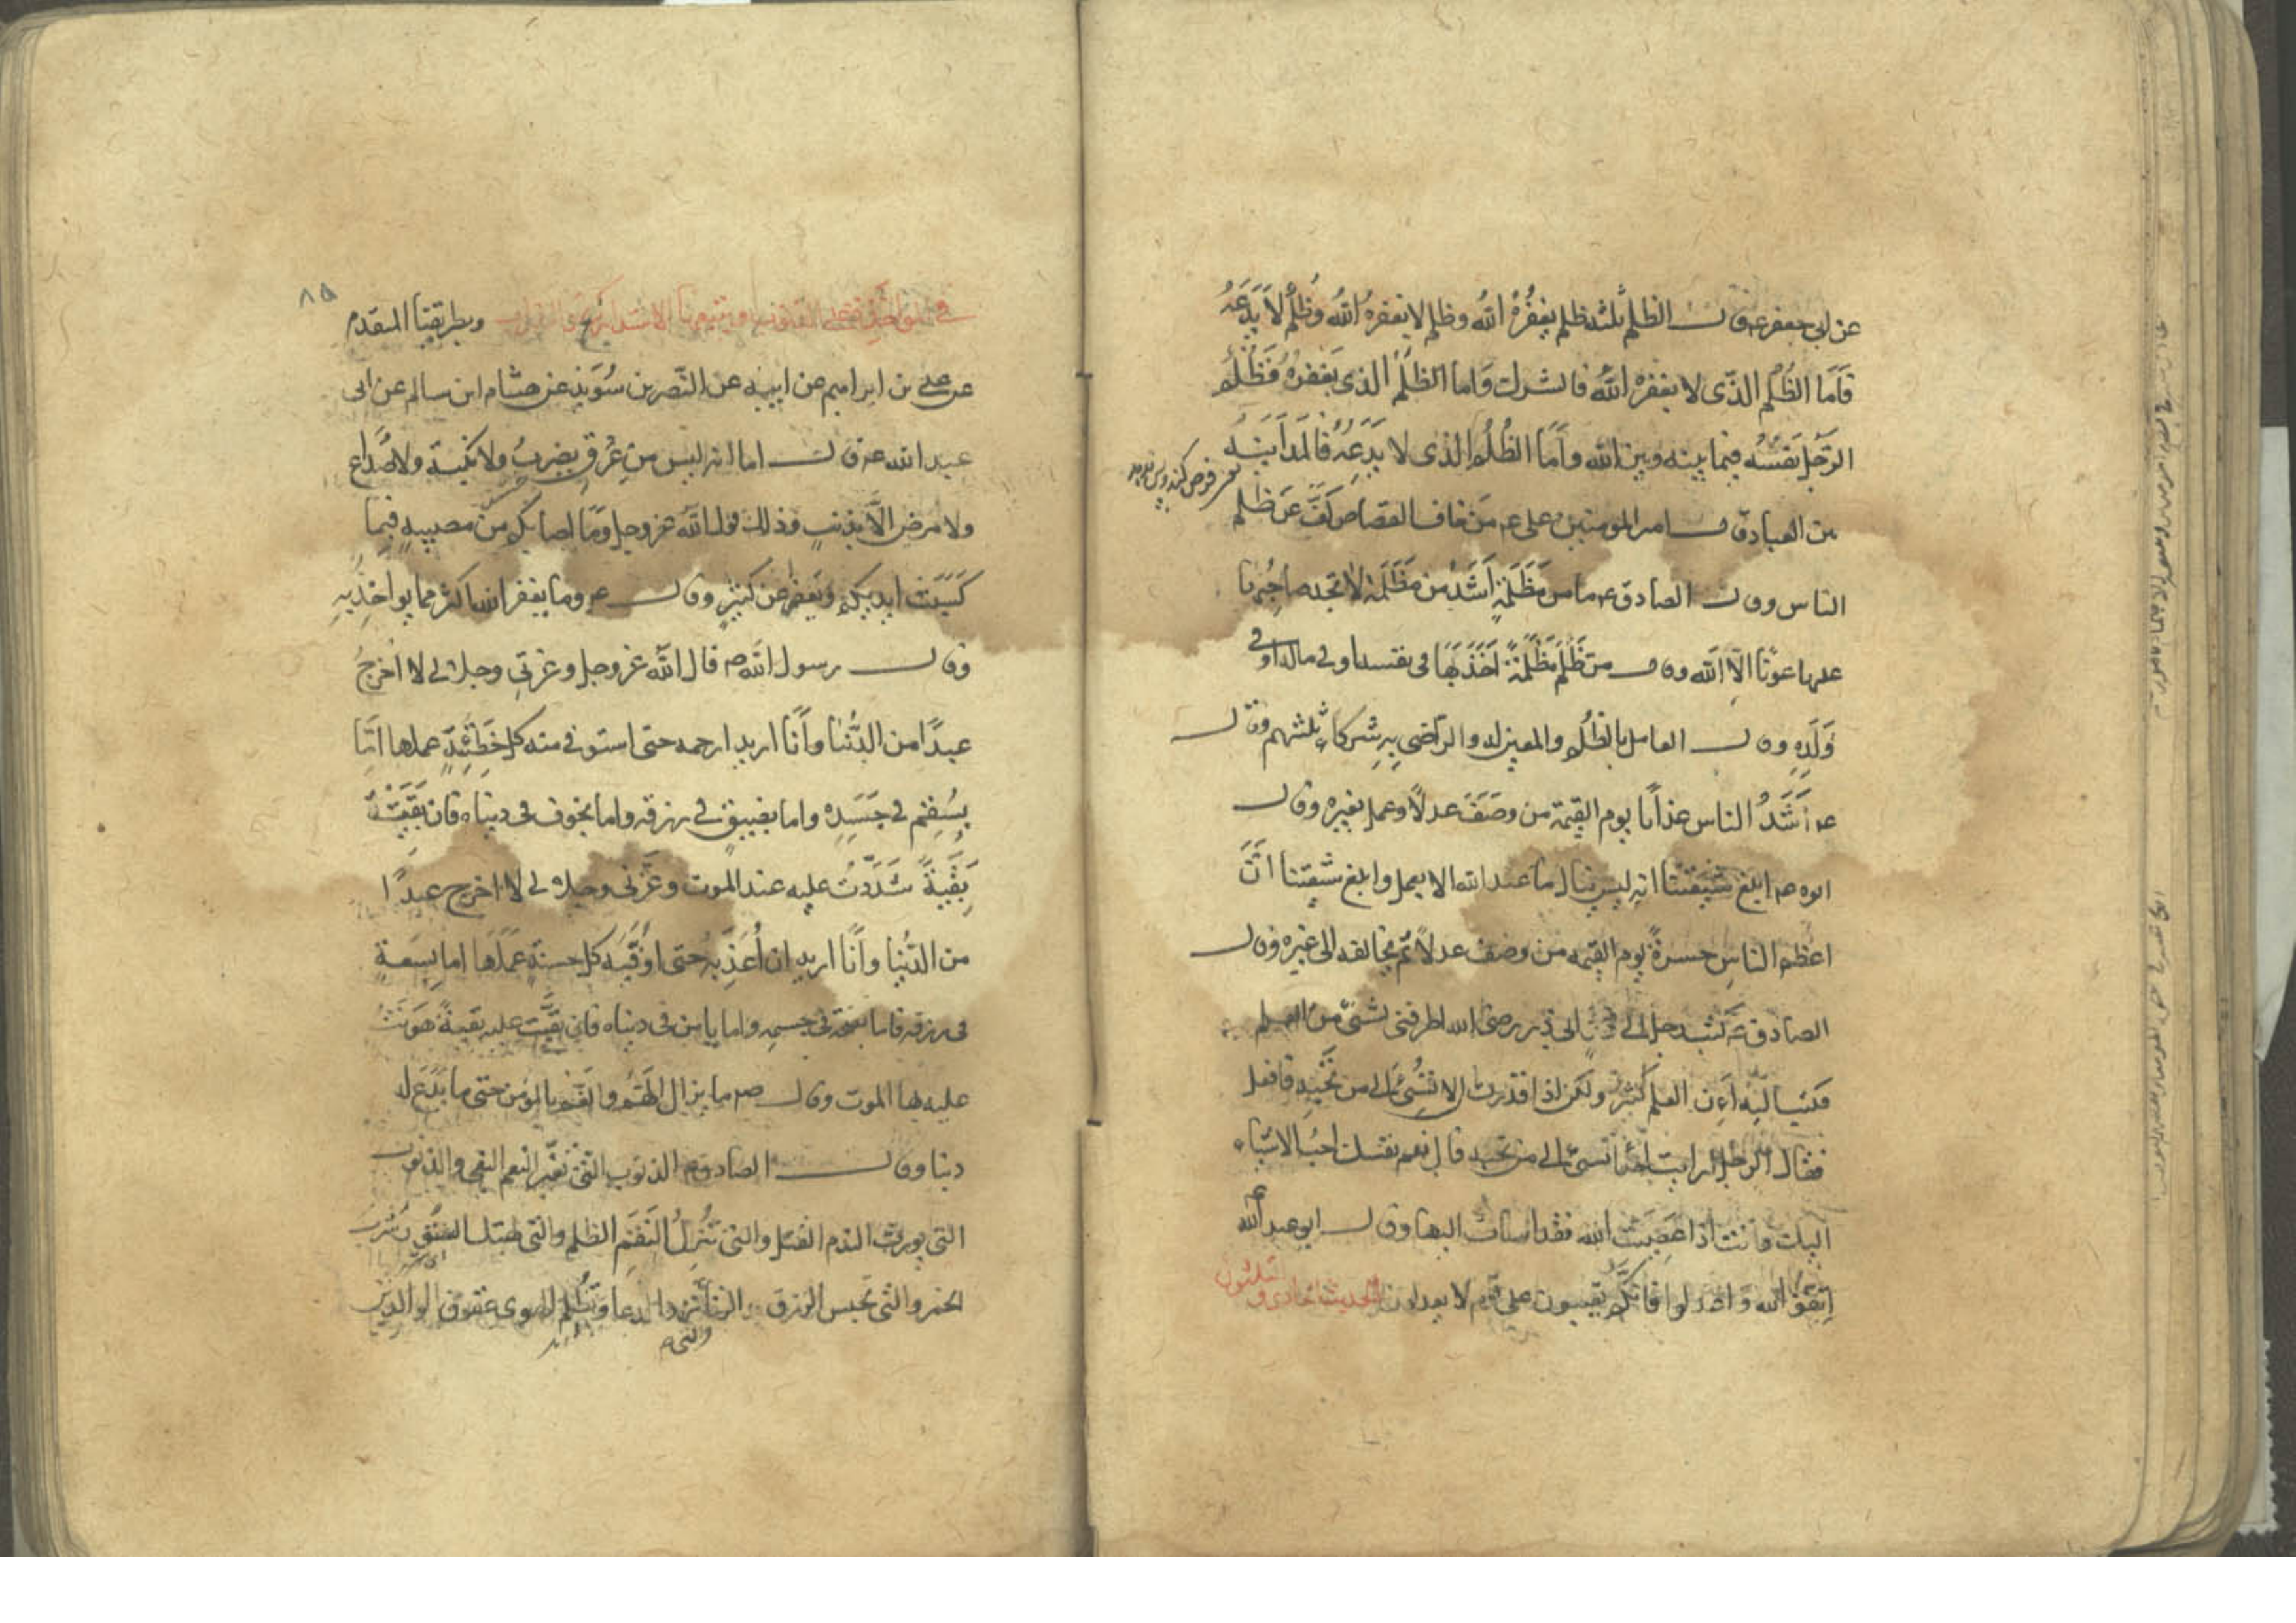 عن ابى جعفر ع قال الظلم ثلثة ظلم يغفره الله وظلم لا يغفره الله وظلم لا يدعه
فاما الظلم الذى لا يغفره الله فالشرك واما الظلم الذى يغفره فظلم
الرجل نفسه فيما بينه وبين الله واما الظلم الذى لا يدعه فالمداينة
بين العباد وقال امير المومنين على ع من خاف القصاص كف عن ظلم
الناس وقال الصادق ع ما من مظلمة اشد من مظلمة لا تجد صاحبها
عليها عونا الا الله وقال من ظلم مظلمة اخذ بها فى نفسه او فى ماله او فى
ولده وقال العامل بالظلم والمعين له والراضى به شركاء ثلثتهم وقال
ع اشد الناس عذابا يوم القيمة من وصف عدلا وعمل بغيره وقال
ابوه ع ابلغ شيعتنا انه ليس ينال ما عند الله الا بعمل وابلغ شيعتنا ان
اعظم الناس حسرة يوم القيمة من وصف عدلا ثم يخالفه الى غيره وقال
الصادق ع كتب رجل الى ابى ذر رضى الله اطرفنى بشئ من العلم
فكتب اليه ان العلم كثير ولكن اذا قدرت ان لا تسئ الى من تحبه فافعل
فقال الرجل ارايت احدا تسئ الى من تحبه قال نعم نفسك احب الاشياء
اليك وانت اذا عصيت الله فقد اسات اليها وقال ابو عبد الله ع
اتقوا الله واعدلوا فانكم تعيبون على قوم لا يعدلون الحديث الحادى و
الثلثون
٨٥
وبطريقنا المتقدم
عن على بن ابراهيم عن ابيه عن النصر بن سويد عن هشام ابن سالم عن ابى
عبد الله ع قال اما انه ليس من عرق يضرب ولا نكبة ولا صداع
ولا مرض الا بذنب وذلك قول الله عز وجل وما اصابكم من مصيبة فبما
كسبت ايديكم ويعفو عن كثير وقال ع وما يغفر الله اكثر مما يواخذ به
وقال رسول الله ص قال الله عز وجل وعزتى وجلالى لا اخرج
عبدا من الدنيا وانا اريد ارحمه حتى استوفى منه كل خطيئة عملها اما
بسقم فى جسده واما بضيق فى رزقه واما بخوف فى دنياه فان بقيت
بقية شددت عليه عند الموت وعزتى وجلالى لا اخرج عبدا
من الدنيا وانا اريد ان اعذبه حتى اوفيه كل حسنة عملها اما بسعة
فى رزقه فاما بصحة فى جسمه واما بامن فى دنياه فان بقيت عليه بقية هونت
عليه بها الموت وقال ص ما يزال الهم والغم بالمؤمن حتى ما يدع له
دنبا وقال الصادق ع الذنوب التى تغير النعم البغى والذنوب
التى يورث الندم القتل والتى تنزل النقم الظلم والتى تهتك الستر شرب
الخمر والتى تحبس الرزق الزنا ترد الدعا وتظلم الهوى عقوق الوالدين
والتى